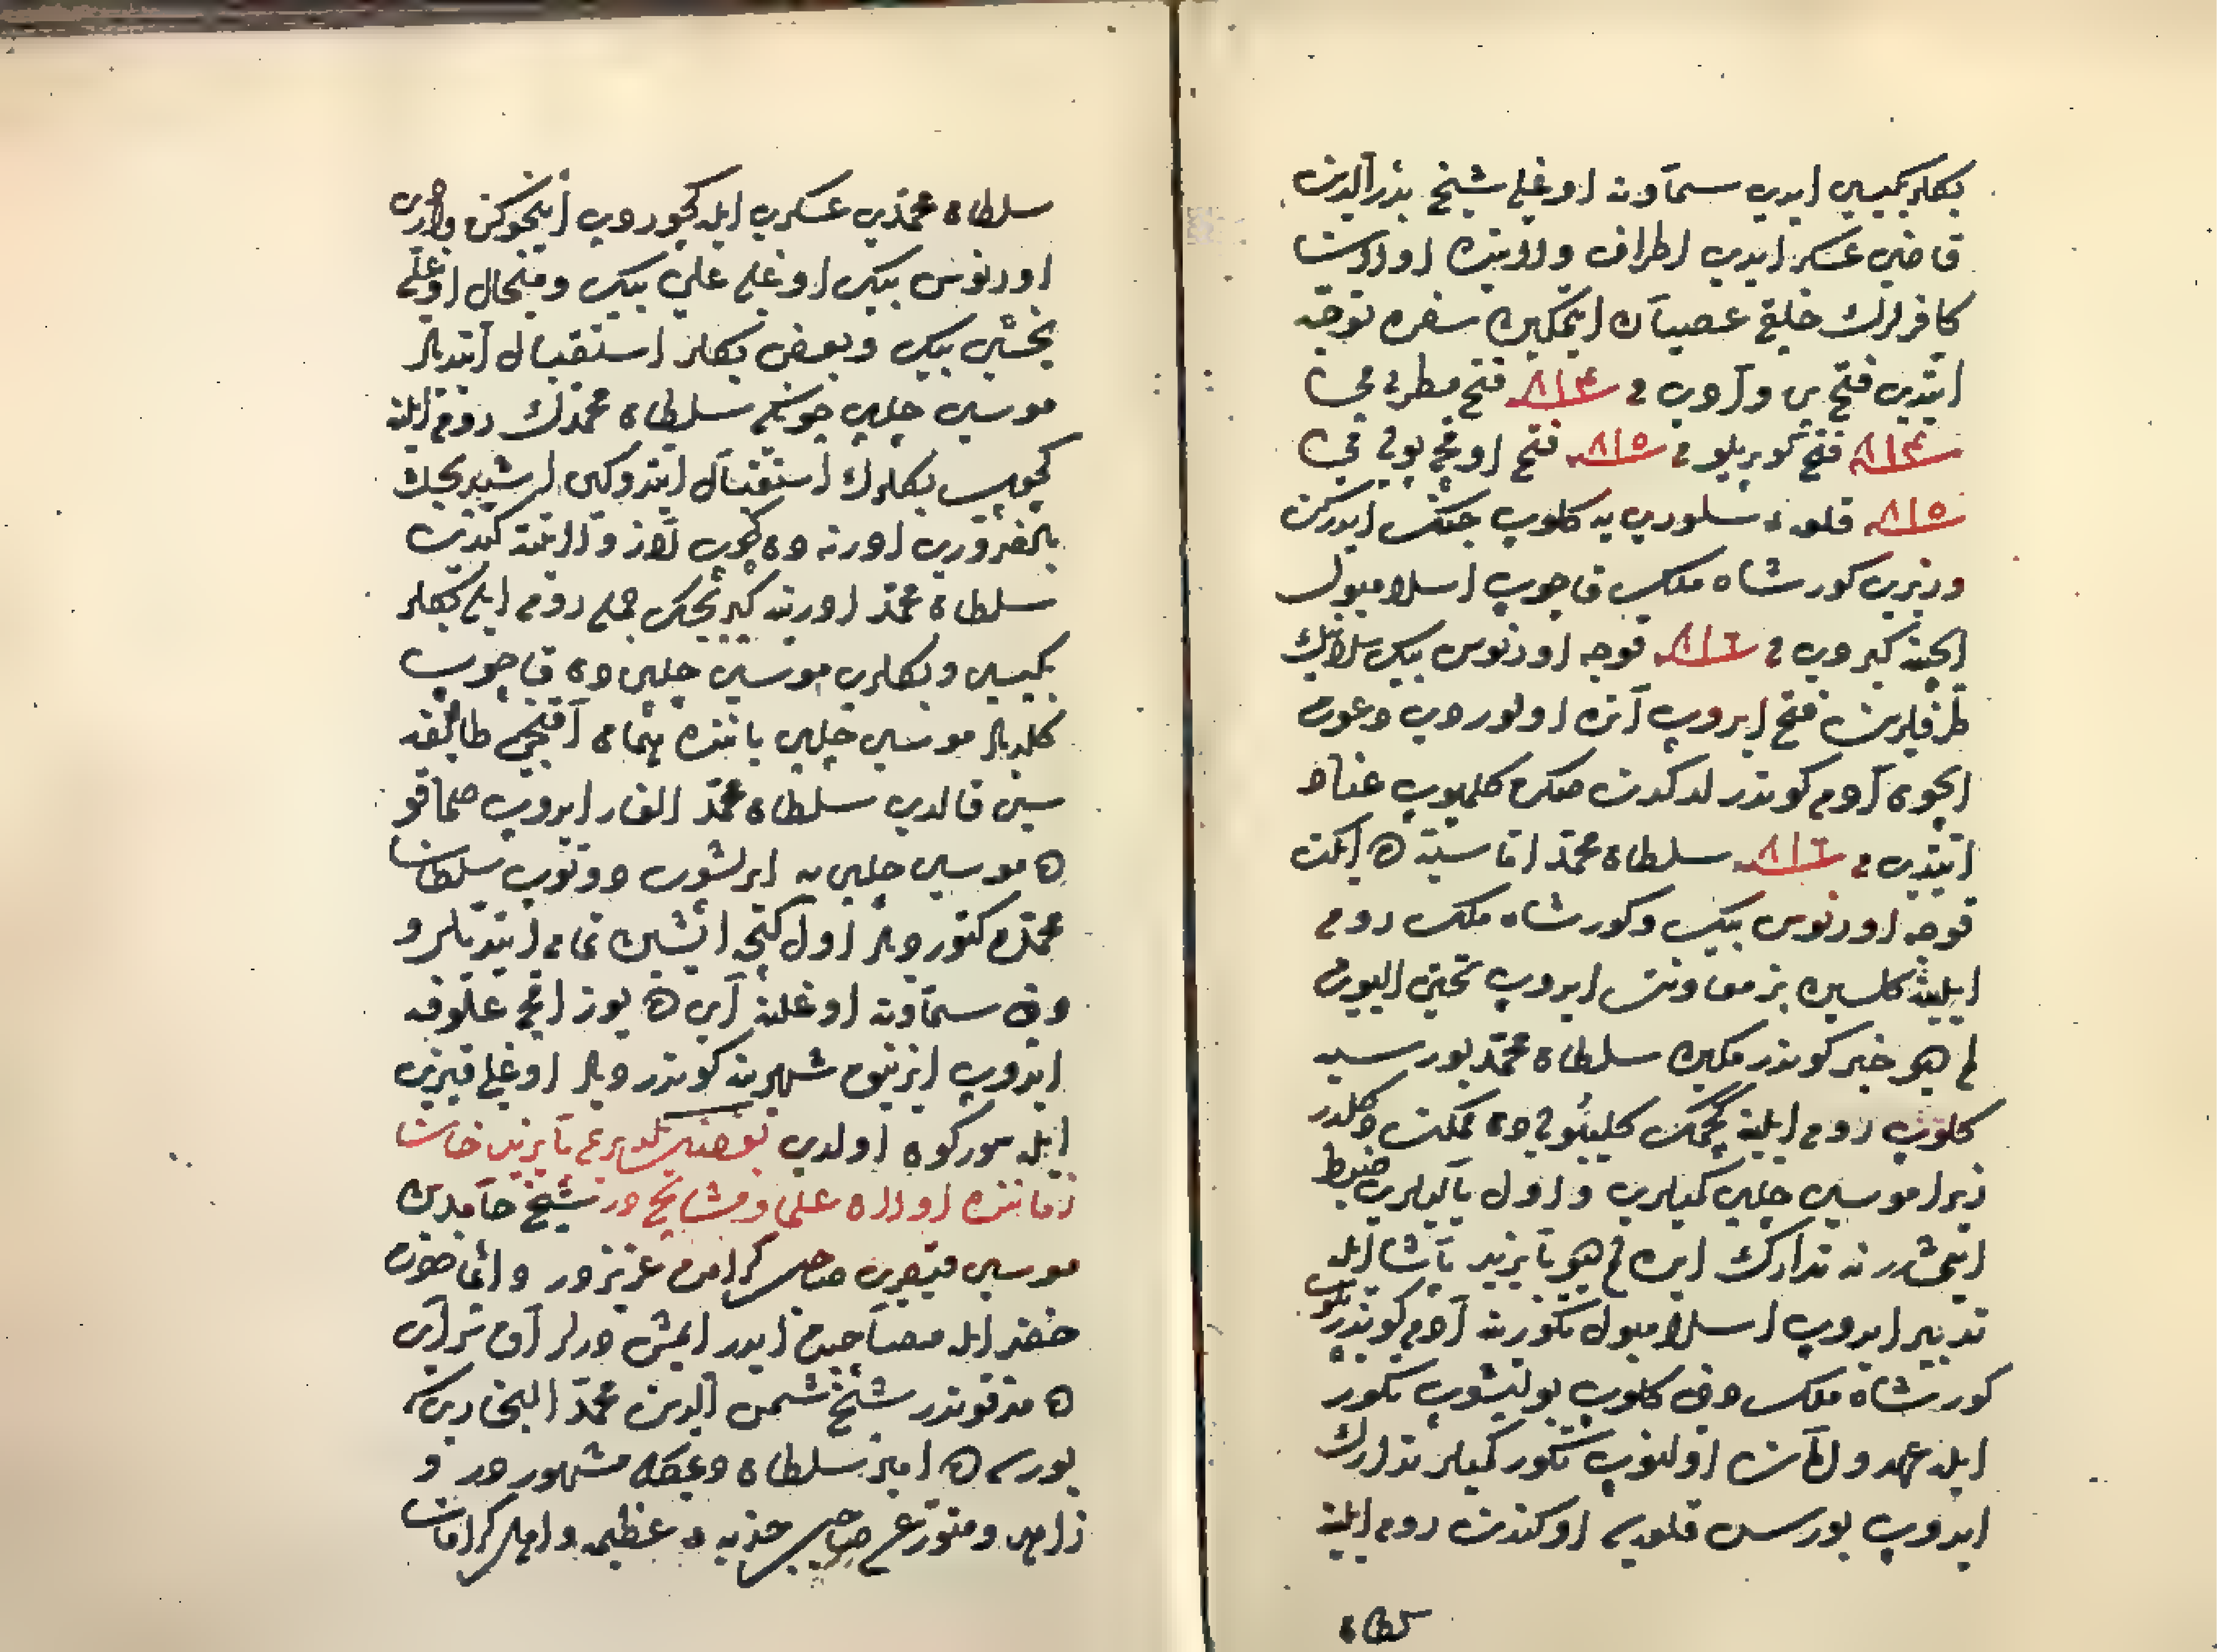 بكلربكيسي ايدي سماونه اوغلي شيخ بدرالدين
قاضي عسكر ايدي اطراف ولايتده اولان
كافرلرك خلقي عصيان ايتمكين سفره توجه
ايتدي فتح واروب في ٨١٤ فتح مطرني في
٨١٤ فتح كوپريلو في ٨١٥ فتح اوغج بولي في
٨١٥ قلعه سلوري يه كلوب جنك ايدركن
وزيري كورشاه ملك قاچوب اسلامبول
ايچنه كيروب في ٨١٦ قوجه اورنوس بيك سلانيك
طرفلرين فتح ايدوب آنده اولوردي دعوت
ايچون آدم كوندرلدكدن صكره كلميوب عناد
ايتدي في ٨١٦ سلطان محمد اماسيه ده ايكن
قوجه اورنوس بيك وكورشاه ملك روم
ايلينه كلسين بز معاونت ايدوب تختن اليورم
لم ديو خبر كوندرمكين سلطان محمد بورسيه
كلوب روم ايلنه كچمك كليبولي دن ممكن دكلدر
زيرا موسي چلبي كميلري واول يالılري ضبط
ايتمشدر نه تدارك ايدلم ديو بايزيد پاشا ايله
تدبير ايدوب اسلامبول تكورينه آدم كوندروب
كورشاه ملك دخي كلوب بوليشوب تكور
ايله عهد و امان اولنوب تكور كميلر تدارك
ايدوب بورس قلعه سي اوكندن روم ايلنه
سلطان
سلطان محمدي عسكري ايله كچوردوب اينجوكن واردي
اورنوس بيك اوغلي علي بيك وميخال اوغلي
يخشي بيك وبعض بكلر استقبال ايتديلر
موسي چلبي چونكه سلطان محمدك روم ايلنه
كچوب بكلرك استقبال ايتدوكين اشيديجك
بالضروري ادرنه دن كوچوب لاز ولايتنه كيتدي
سلطان محمد ادرنه كيريجك جمله روم ايلي بكلر
بكيسي وبكلري موسي چلبي دن قاچوب
كلديلر موسي چلبي ياننده همان آقنجي طائفه
سي قالدي سلطان محمد الغار ايدوب صماقو
ده موسي چلبي يه ايرشوب دوتوب سلطان
محمده كتورديلر اول كيجه ايشين تمام ايتديلر و
دخي سماونه اوغلنه آي ده يوز اقچه علوفه
ايدوب ازنيق شهرينه كوندرديلر اوغلي قيزي
ايله سوركون اولدي بوضيله يلدرم بايزيد خان
زماننده اولان علما ومشايخدر شيخ حامد بن
موسي قيصري صاحب كرامت عزيزدر ودائما حضرت
خضر ايله مصاحبت ايدر ايمش ديرلر آق سراي
ده مدفوندر شيخ شمس الدين محمد البخاري كه
بورسه ده امير سلطان ديمكله مشهوردر و
زاهد ومتورع صاحب جذبه عظيمه واهل كرامات